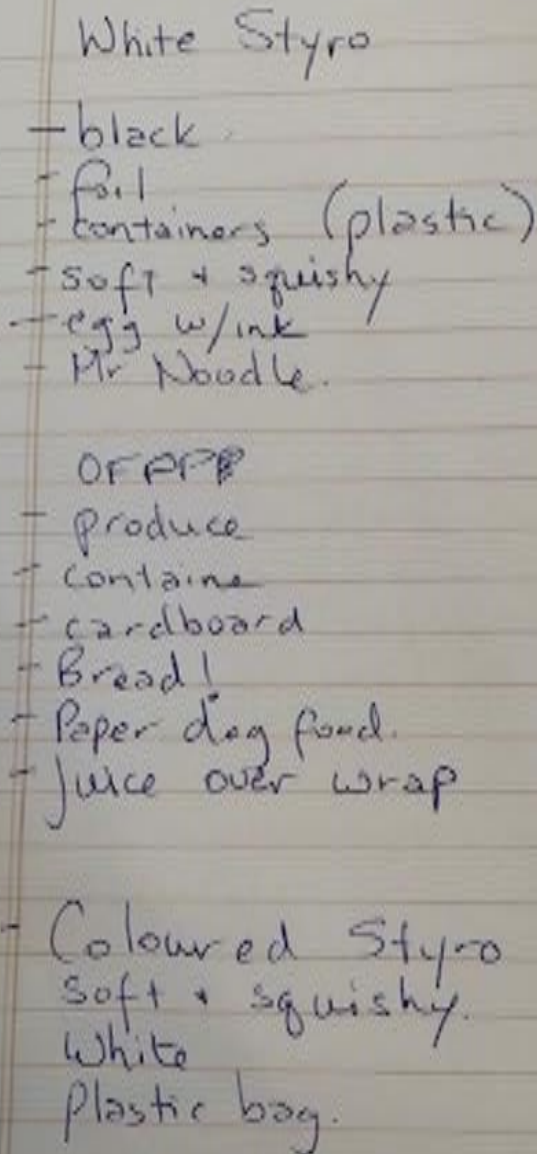 White Styro
- black
- foil
- containers (plastic)
- soft + squishy
- egg w/ink
- Mr Noodle.
OFPPP
- produce
- containe
- cardboard
- Bread!
- Paper dog food.
- Juice over wrap
- Coloured Styro
Soft + squishy.
White
Plastic bag.